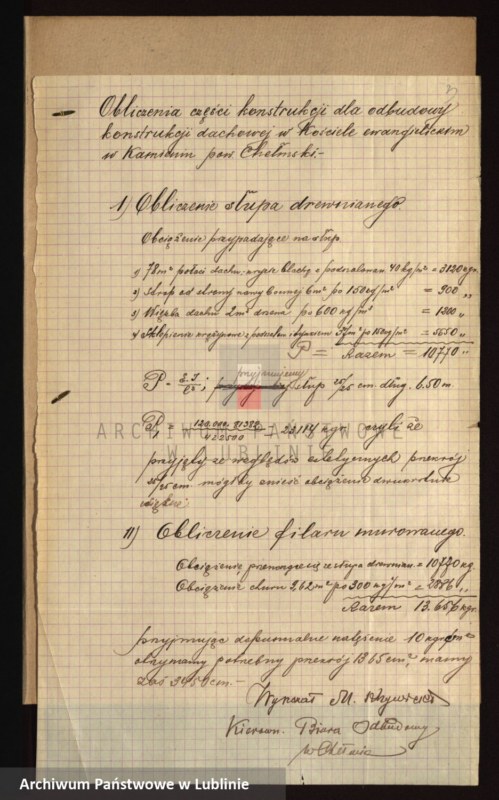 Obliczenia części konstrukcji dla odbudowy
konstrukcji dachowej w Kościele ewangielickim
w Kamieniu pow. Chełmski.—
I) Obliczenie słupa drewnianego.
Obciążenie przypadające na słup
1) 78 m² połaci dachu, krycie blachą o podszalowan 40 kg/m² = 3120 kgr.
2) strop od strony nawy bocznej 6 m² po 150 kg/m² = 900 „
3) Więźba dachu 2 m³ drzewa po 600 kg/m³ = 1200 „
4) Sklepienie z tynkiem po 150 kg/m² = 5550 „
P = Razem = 10770 „
przyjmujemy
słup 25/25 cm. dług. 6.50 m.
= 22114 kgr. czyli że
przyjęty ze względów estetycznych przekrój
25/25 cm. mógłby znieść obciążenie dwukrotnie
większe.
II) Obliczenie filaru murowanego.
Obciążenie przenoszące się ze słupa drewnian. = 10770 kg.
Obciążenie 9,62 m² po 300 kg/m² = 2886 „
Razem 13.656 kgr.
przyjmując dopuszczalne natężenie 10 kgr/cm²
otrzymamy potrzebny przekrój 1365 cm², mamy
zaś cm.—
Wykonał M.
Kierown. Biura Odbudowy
w Chełmie
ARCHIWUM PAŃSTWOWE
W LUBLINIE
Archiwum Państwowe w Lublinie